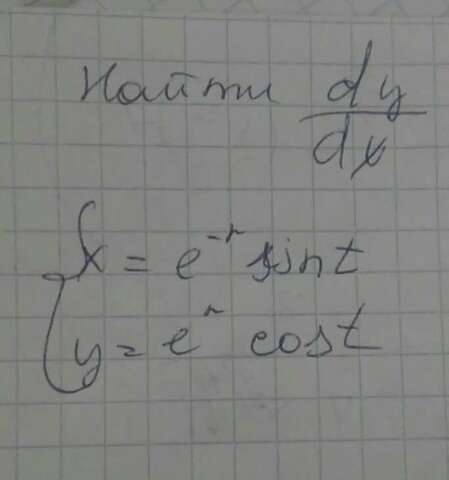 Найти dy/dx
x = e^-r sin t
y = e^r cos t